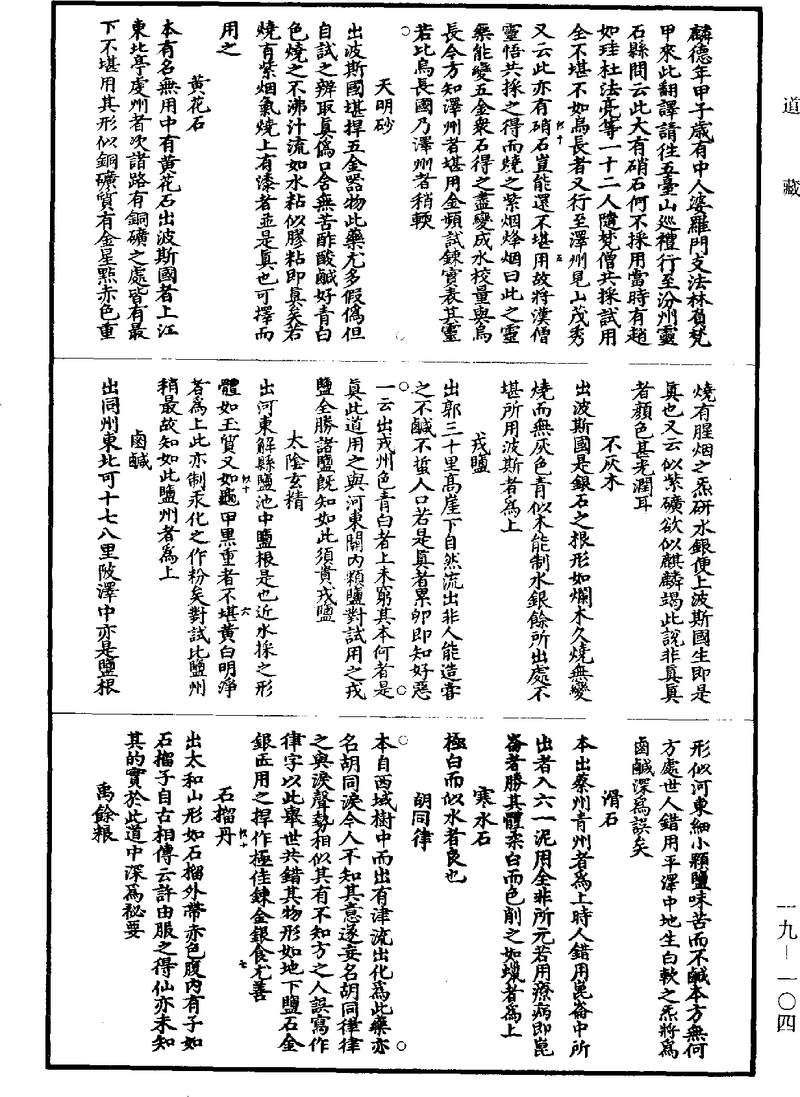 道藏
麟德年甲子歲有中人婆羅門支法林負梵
甲來此翻譯請往五臺山巡禮行至汾州靈
石縣問云此大有硝石何不採用當時有趙
如珪杜法亮等一十二人隨梵僧共採試用
全不堪不如烏長者又行至澤州見山茂秀
又云此亦有硝石豈能還不堪用故將漢僧
靈悟共採之得而燒之紫烟烽烟曰此之靈
藥能變五金衆石得之盡變成水校量與烏
長今方知澤州者堪用金頻試鍊實表其靈
若比烏長國乃澤州者稍軟
天明砂
出波斯國堪捍五金器物此藥尤多假偽但
自試之辨取真偽口含無苦酢酸鹹好青白
色燒之不沸汁流如水粘似膠粘即真矣若
燒有紫烟氣燒上有漆者並是真也可擇而
用之
黄花石
本有名無用中有黄花石出波斯國者上江
東北亭處州者次諸路有銅礦之處皆有最
下不堪用其形似銅礦質有金星點赤色重
燒有腥烟之炁研水銀便上波斯國生即是
真也又云似紫礦欲似麒麟竭此説非真真
者顔色甚光潤耳
不灰木
出波斯國是銀石之根形如爛木久燒無變
燒而無灰色青似木能制水銀餘所出處不
堪所用波斯者爲上
戎鹽
出郭三十里高崖下自然流出非人能造嘗
之不鹹不蜇人口若是真者累卵即知好惡
一云出戎州色青白者上未窮其本何者是
真此道用之與河東關内顆鹽對試用之戎
鹽全勝諸鹽既知如此須貴戎鹽
太陰玄精
出河東解縣鹽池中鹽根是也近水採之形
體如玉質又如龜甲黒重者不堪黄白明淨
者爲上此亦制汞化之作粉矣對試比鹽州
稍最故知如此鹽州者爲上
鹵鹹
出同州東北可十七八里陂澤中亦是鹽根
形似河東細小顆鹽味苦而不鹹本方無何
方處世人錯用平澤中地生白軟之炁將爲
鹵鹹深爲誤矣
滑石
本出蔡州青州者爲上時人錯用崑崙中所
出者入六一泥用全非所元若用療病即崑
崙者勝其體柔白而色削之如蠟者爲上
寒水石
極白而似水者良也
胡同律
本自西域樹中而出有津流出化爲此藥亦
名胡同淚今人不知其意遂妄名胡同律律
之與淚聲勢相似其有不知方之人誤寫作
律字以此舉世共錯其物形如地下鹽石金
銀匠用之捍作極佳鍊金銀食尤善
石榴丹
出太和山形如石榴外帶赤色腹内有子如
石榴子自古相傳云許由服之得仙亦未知
其的實於此道中深爲祕要
禹餘粮
一九—一〇四